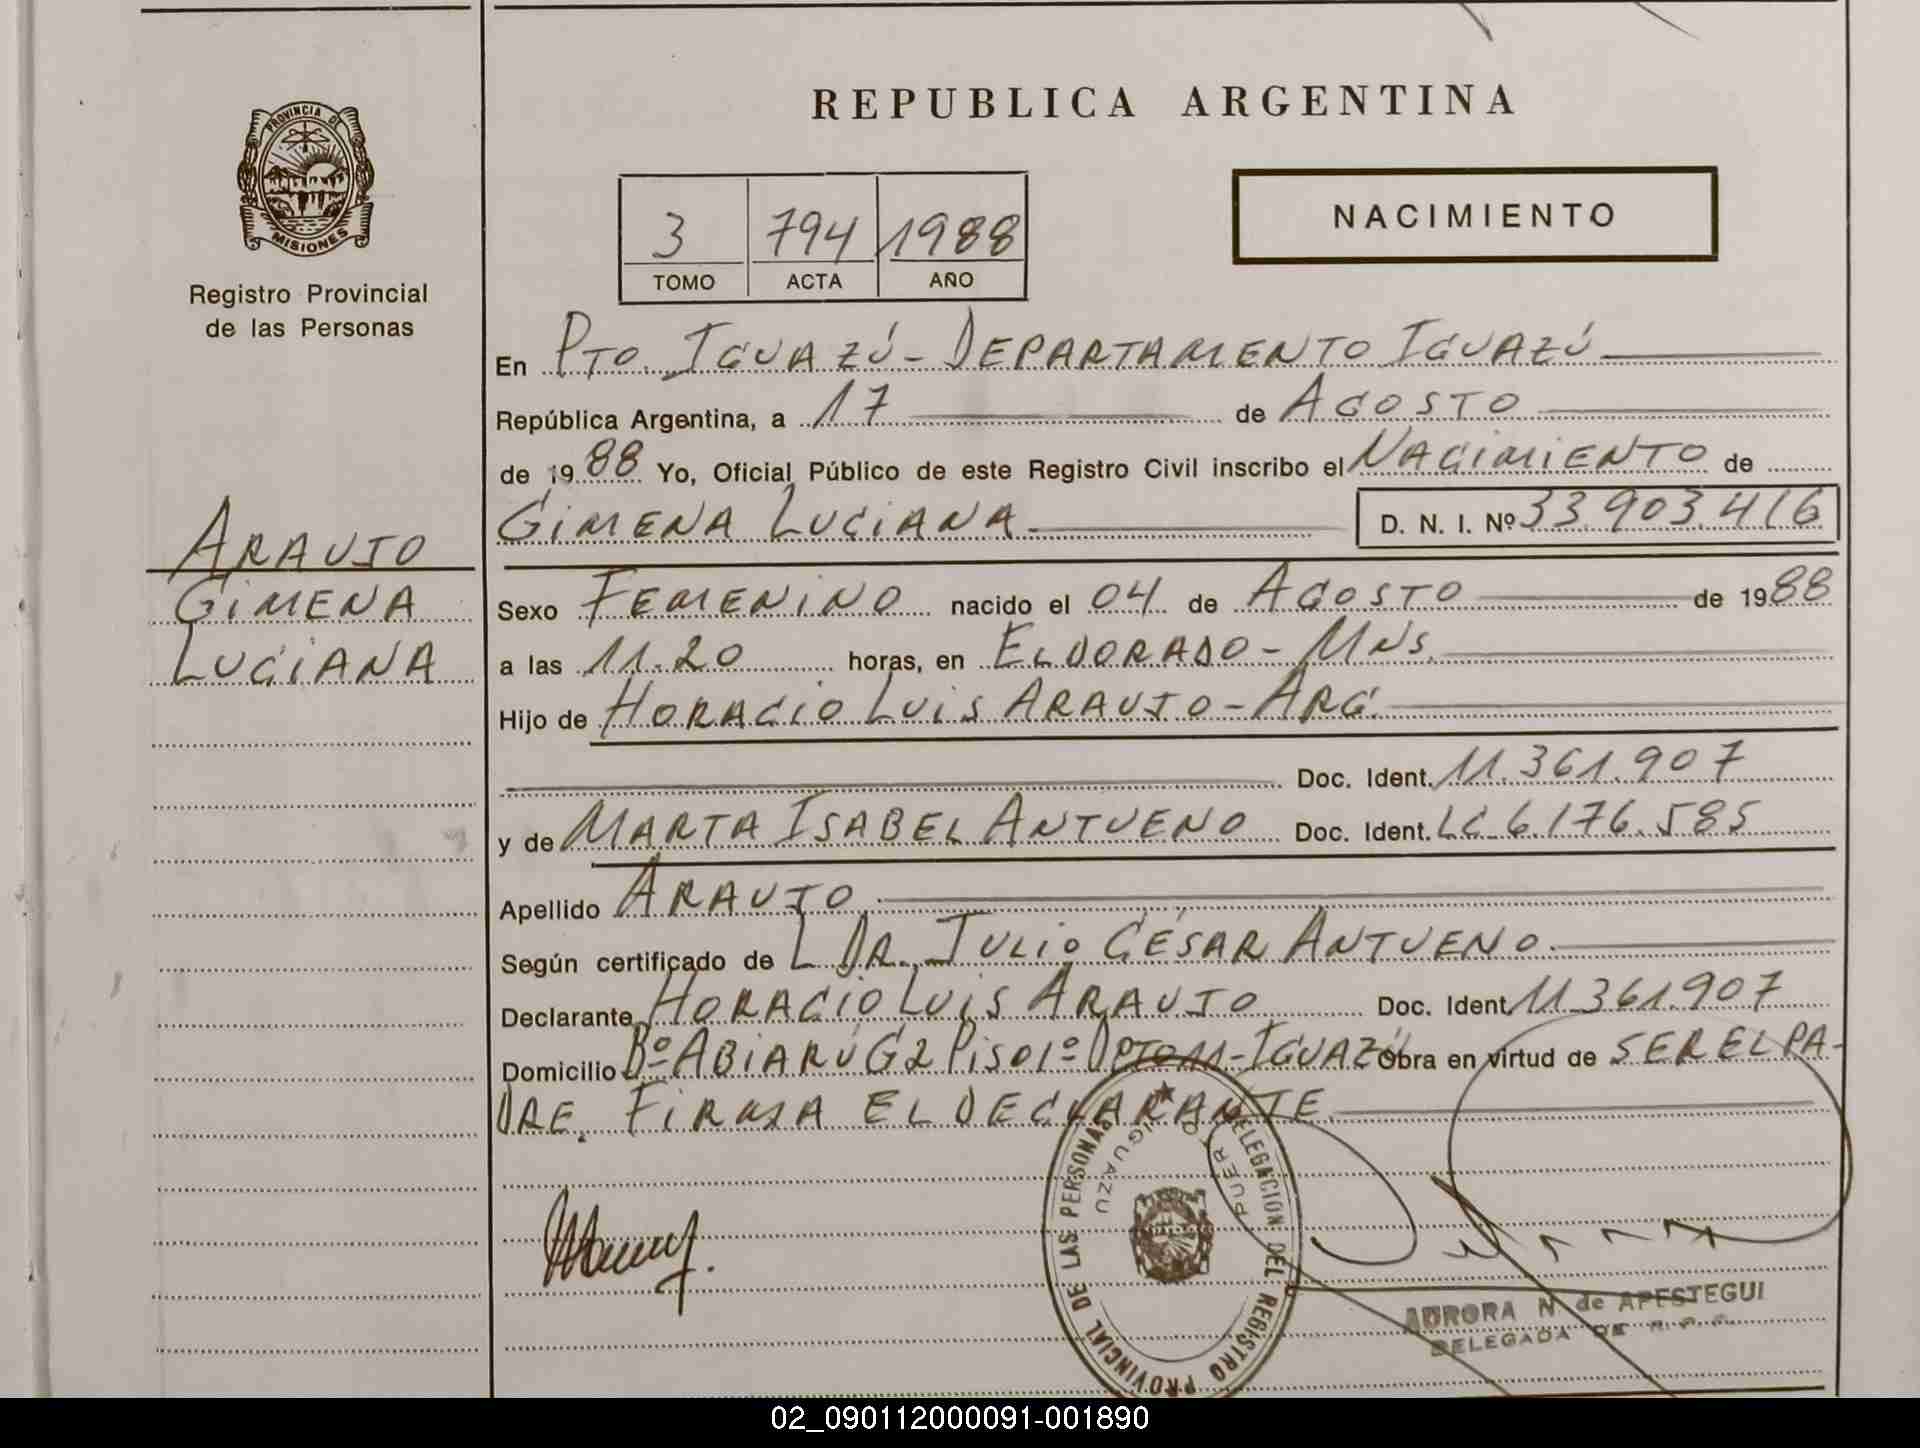 REPUBLICA ARGENTINA
PROVINCIA DE
MISIONES
Registro Provincial
de las Personas
3 794 1988
TOMO ACTA AÑO
NACIMIENTO
En PTO. IGUAZÚ - DEPARTAMENTO IGUAZÚ
República Argentina, a 17 de AGOSTO
de 1988 Yo, Oficial Público de este Registro Civil inscribo el NACIMIENTO de
GIMENA LUCIANA D. N. I. Nº 33.903.416
ARAUJO
GIMENA
LUCIANA
Sexo FEMENINO nacido el 04 de AGOSTO de 1988
a las 11.20 horas, en ELDORADO - MNS.
Hijo de HORACIO LUIS ARAUJO - ARG.
Doc. Ident. 11.361.907
y de MARTA ISABEL ANTUENO Doc. Ident. LC 6.176.585
Apellido ARAUJO
Según certificado de L DR. JULIO CÉSAR ANTUENO.
Declarante HORACIO LUIS ARAUJO Doc. Ident. 11361.907
Domicilio Bº ABIARÚ G2 PISO 1º DPTO M - IGUAZÚ Obra en virtud de SER EL PA-
DRE. FIRMA EL DECLARANTE.
DELEGACION DEL REGISTRO PROVINCIAL DE LAS PERSONAS
PUERTO IGUAZU
AURORA N. de APESTEGUI
DELEGADA DE R. P. P.
02_090112000091-001890